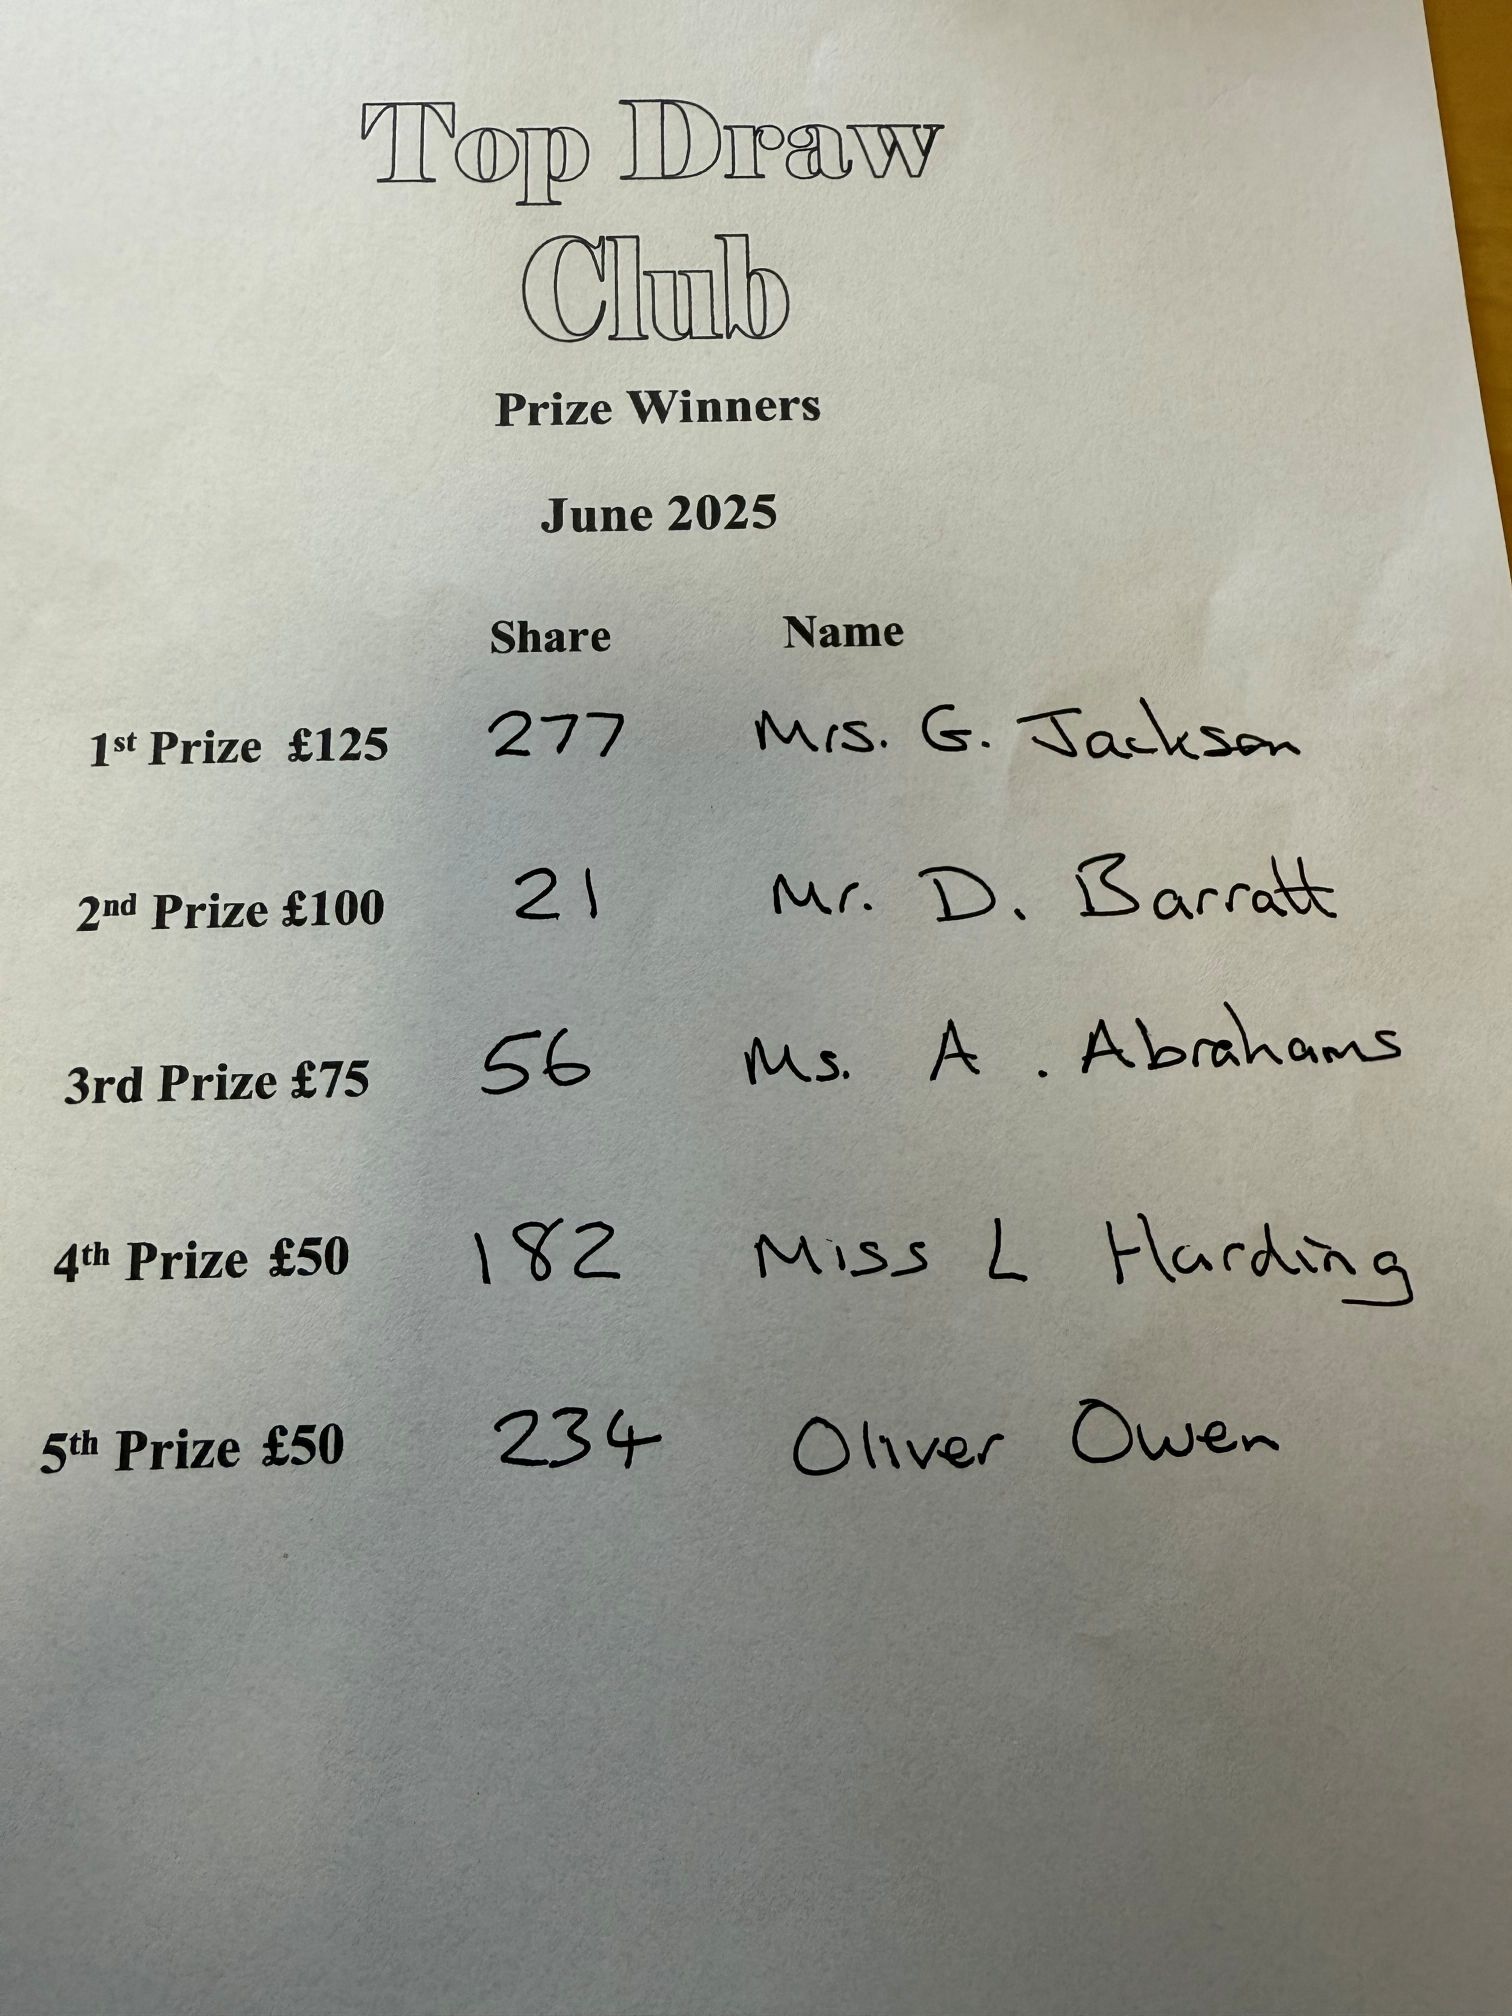 Top Draw
Club
Prize Winners
June 2025
Share Name
1st Prize £125 277 Mrs. G. Jackson
2nd Prize £100 21 Mr. D. Barratt
3rd Prize £75 56 Ms. A. Abrahams
4th Prize £50 182 Miss L Harding
5th Prize £50 234 Oliver Owen